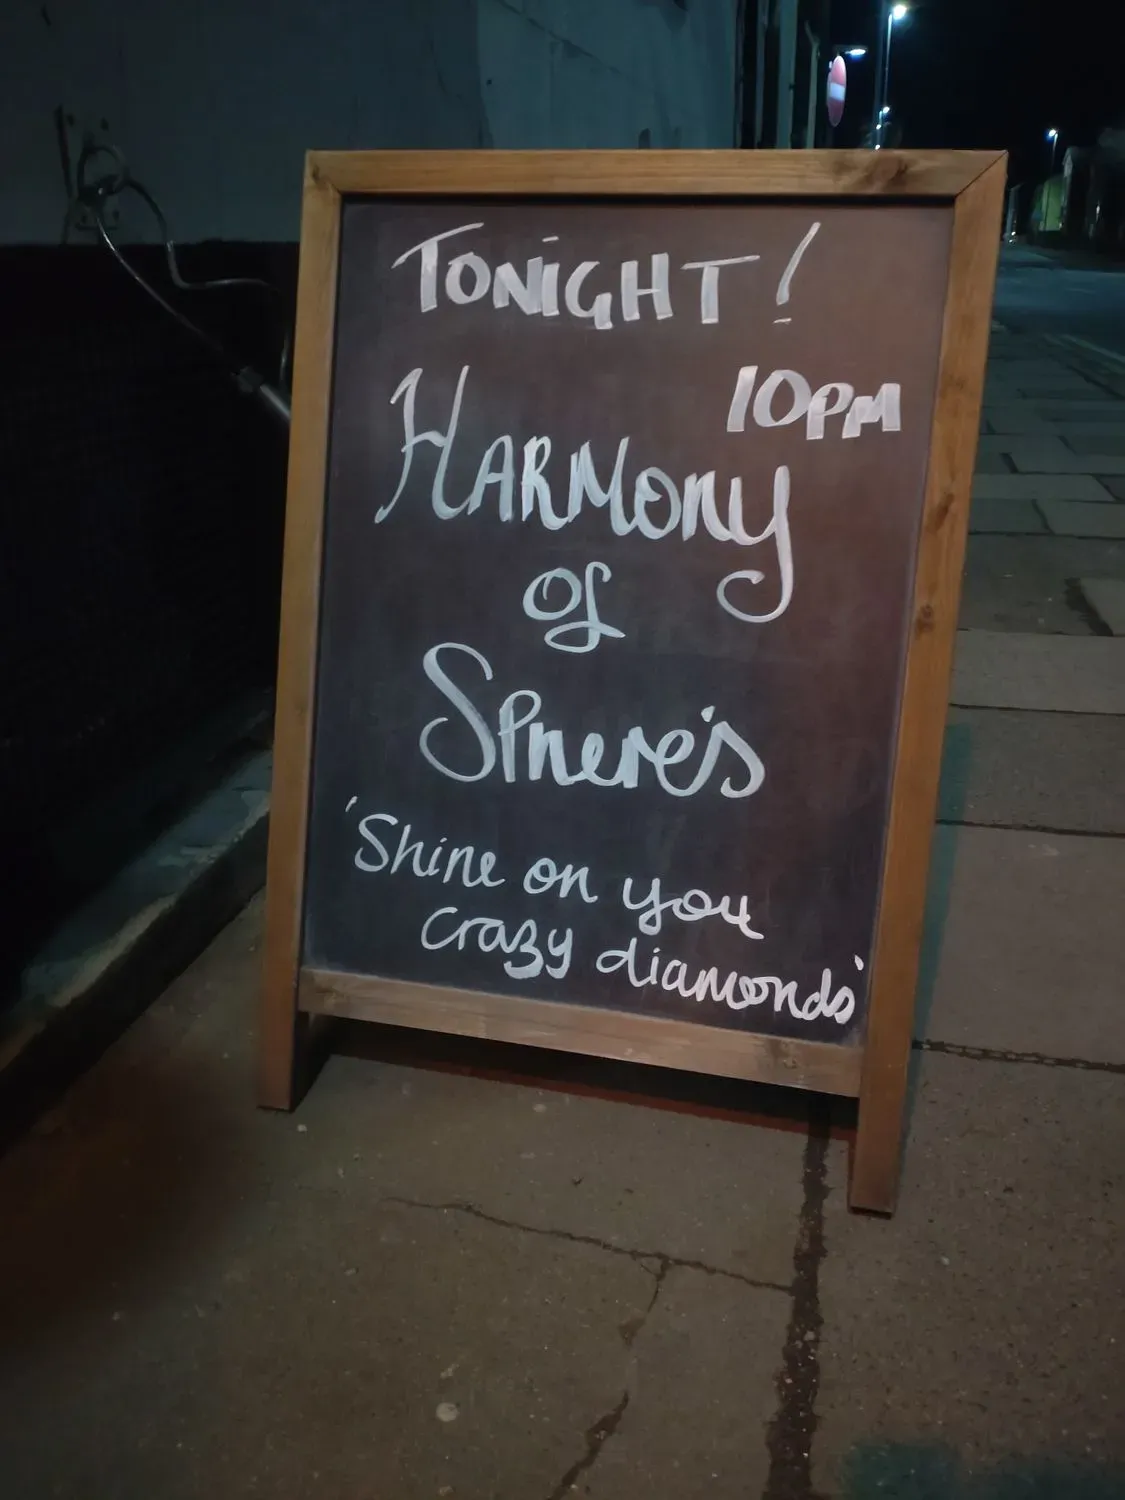 TONIGHT!
10PM
HARMONY
of
SPHERE'S
'Shine on you
crazy diamonds'